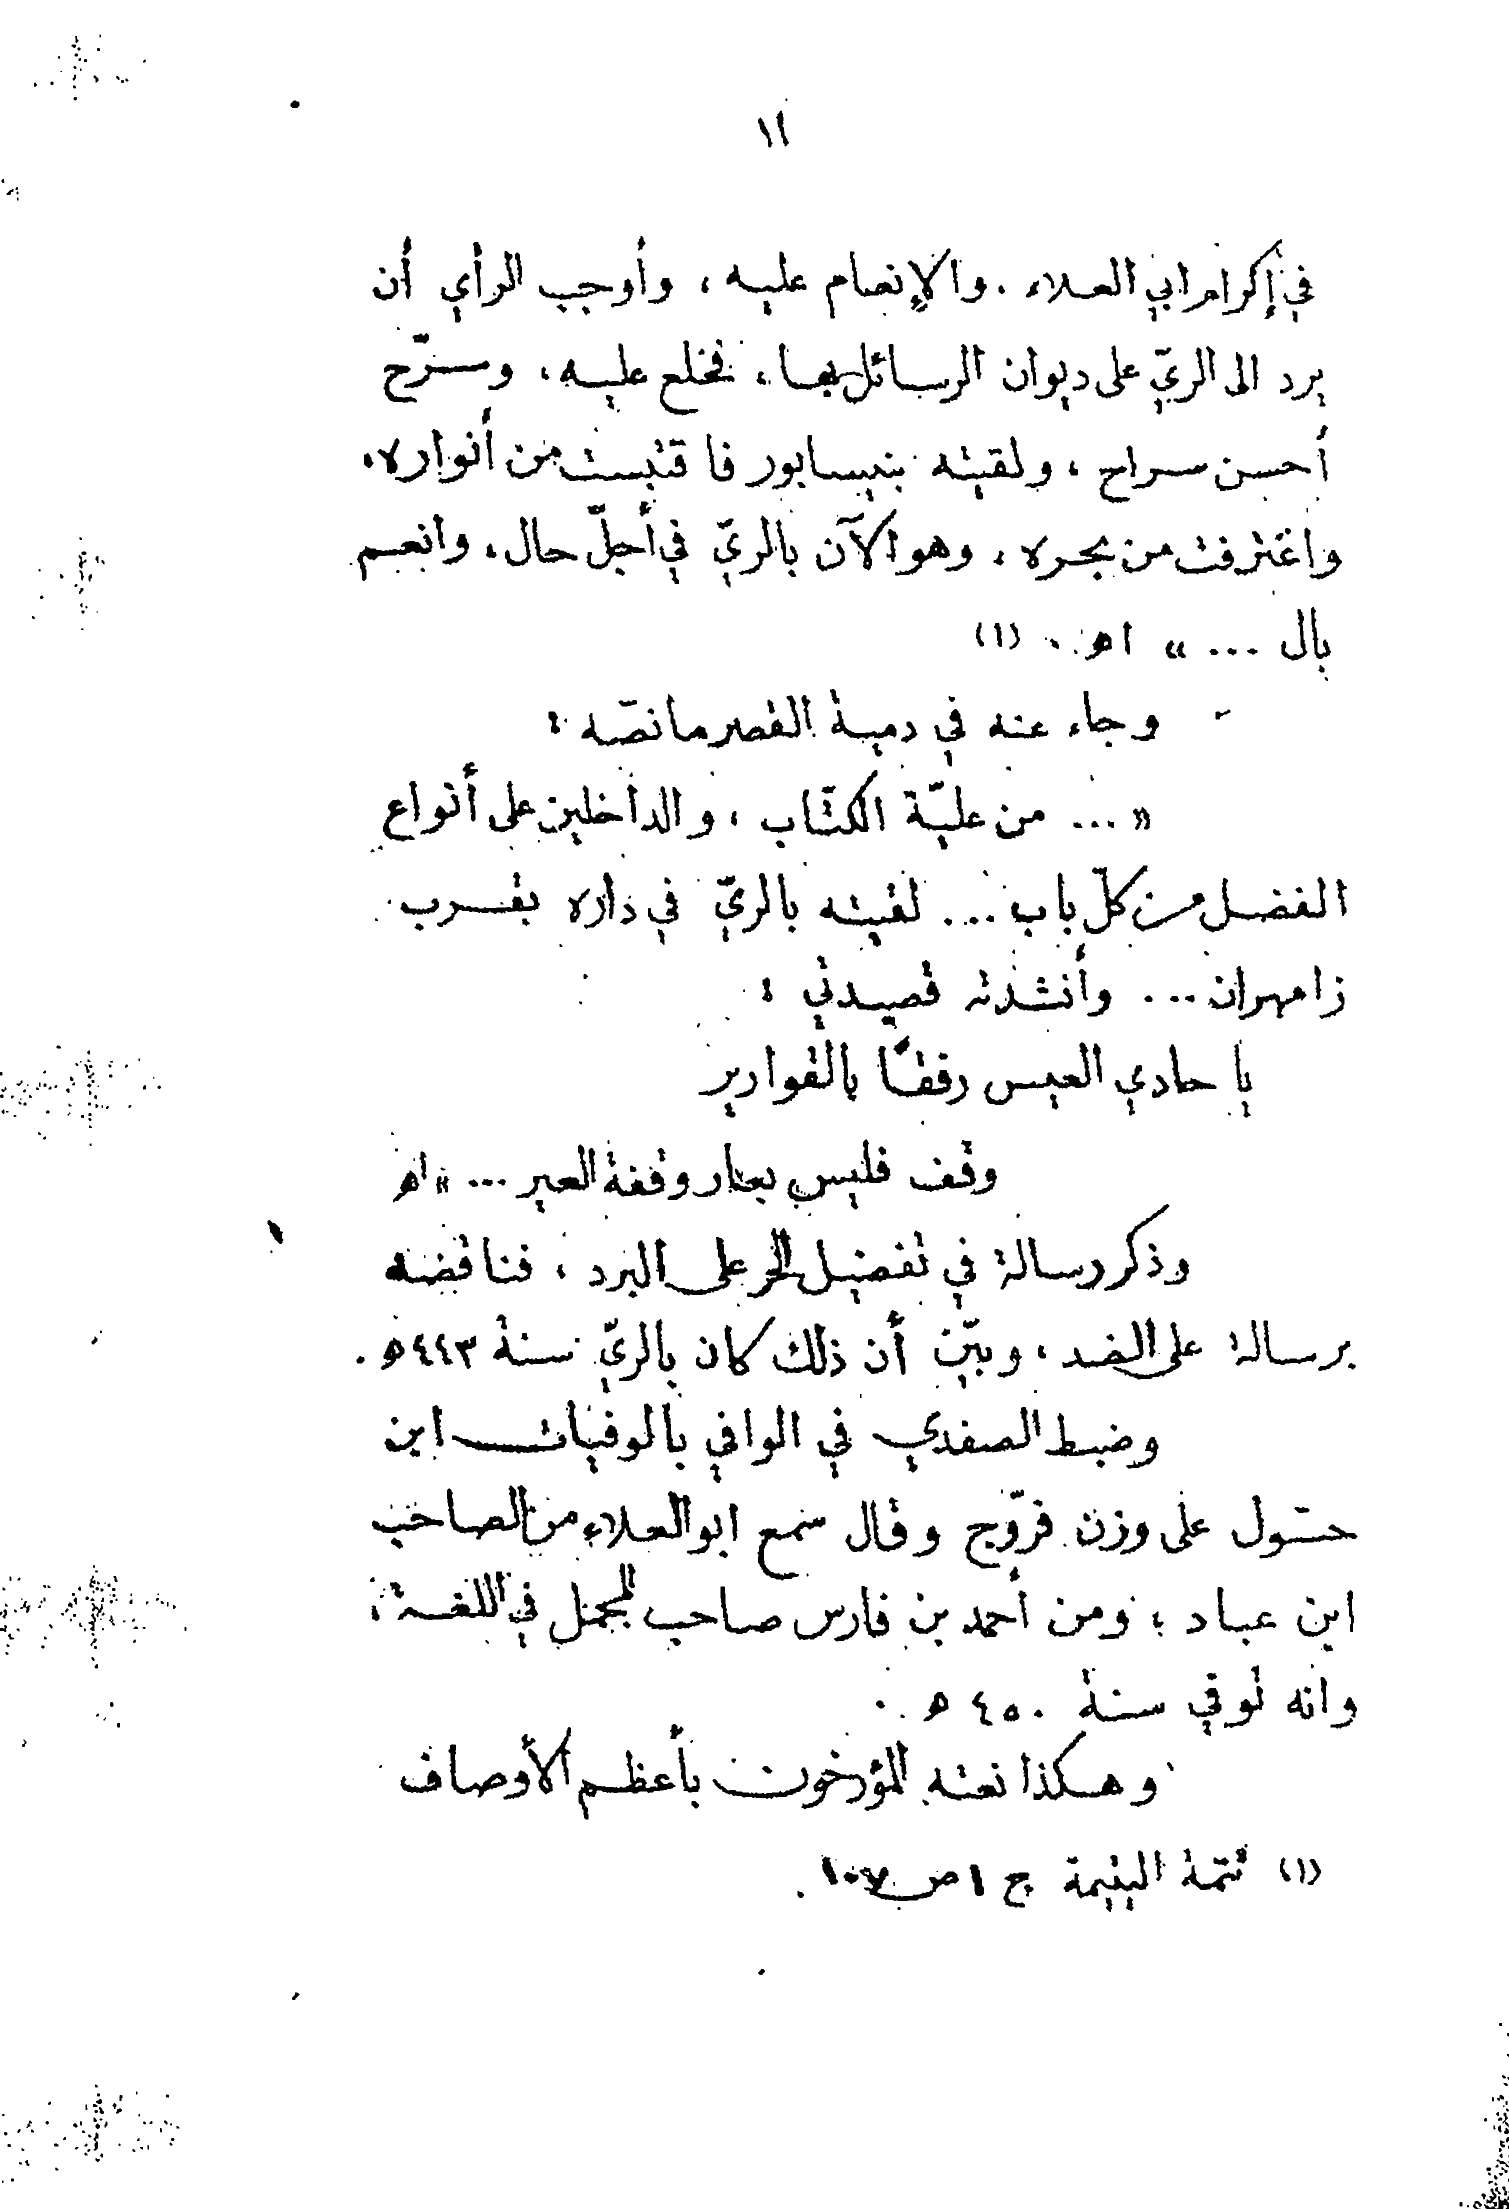 ١١
في إكرام ابي العلاء . والإنعام عليه ، وأوجب الرأي أن
يرد الى الريّ على ديوان الرسائل بها ، فخلع عليه ، وسرّح
أحسن سراح ، ولقيته بنيسابور فاقتبست من أنواره ،
واغترفت من بحره ، وهو الآن بالريّ في أجلّ حال ، وانعم
بال ... » اهـ . (١)
وجاء عنه في دمية القصر ما نصّه :
« ... من عليّة الكتّاب ، والداخلين على أنواع
الفضل من كلّ باب ... لقيته بالريّ في داره بقرب
زامهران ... وأنشدته قصيدتي :
يا حادي العيس رفقًا بالقوارير
وقف فليس بعار وقفة العير ... » اهـ
وذكر رسالة في تفضيل الحر على البرد ، فناقضه
برسالة على الضد ، وبيّن أن ذلك كان بالريّ سنة ٤٤٣ هـ .
وضبط الصفدي في الوافي بالوفيات ابن
حسّول على وزن فرّوج وقال سمع ابو العلاء من الصاحب
ابن عباد ؛ ومن أحمد بن فارس صاحب المجمل في اللغة ؛
وانه توفي سنة ٤٥٠ هـ .
وهكذا نعته المؤرخون بأعظم الأوصاف
(١) تتمة اليتيمة ج ١ ص ١٠٧ .